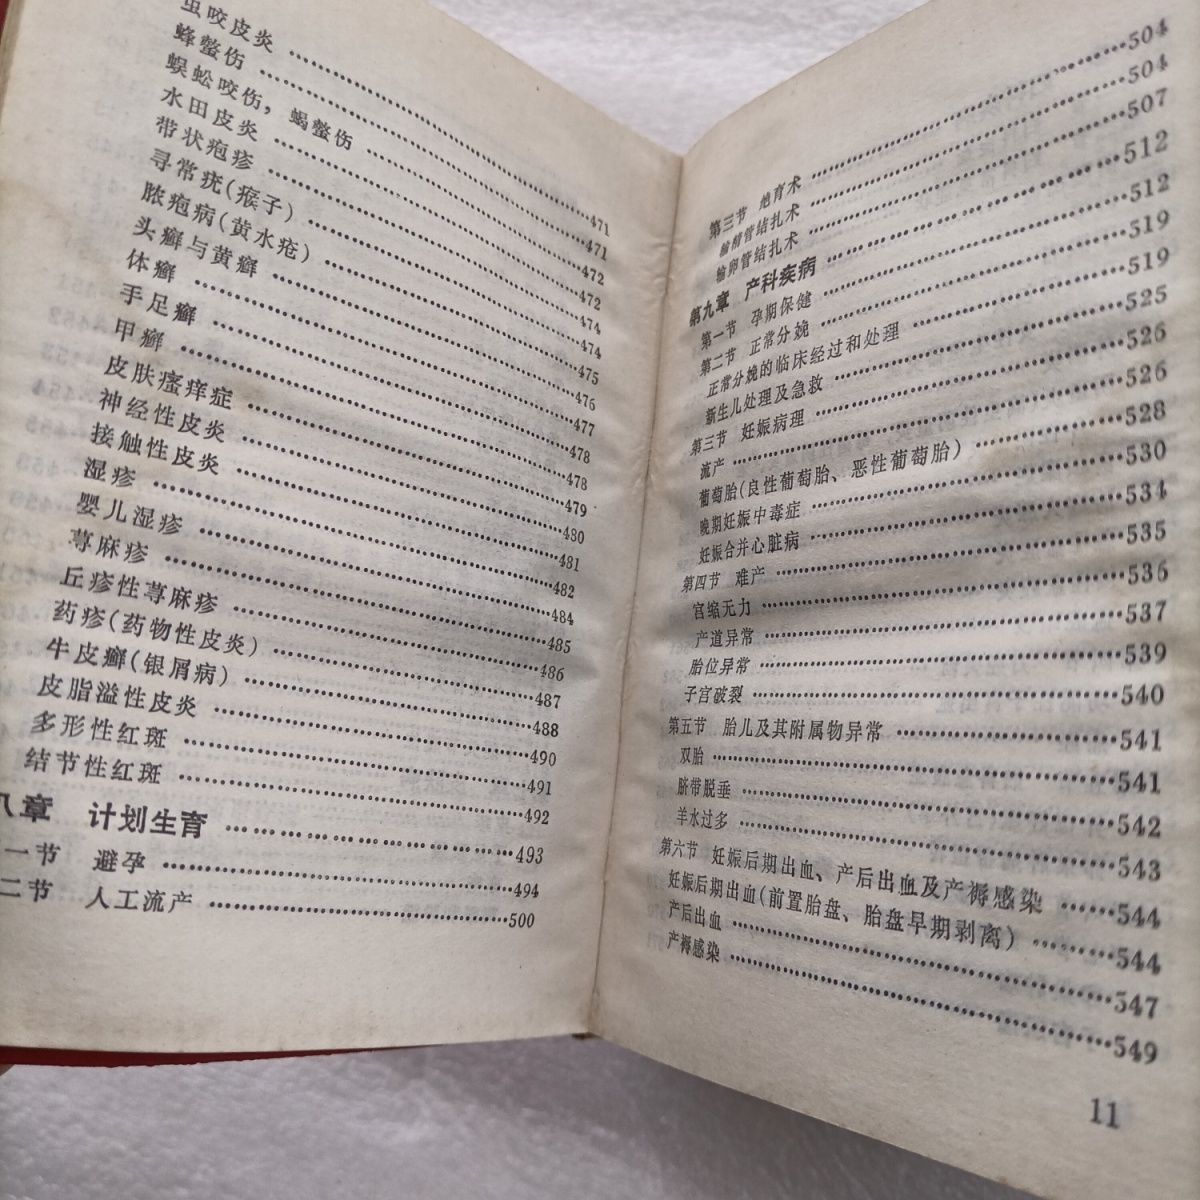 虫咬皮炎 …… 471
蜂螫伤 …… 471
蜈蚣咬伤，蝎螫伤 …… 472
水田皮炎 …… 472
带状疱疹 …… 474
寻常疣(瘊子) …… 474
脓疱病(黄水疮) …… 475
头癣与黄癣 …… 476
体癣 …… 477
手足癣 …… 478
甲癣 …… 478
皮肤瘙痒症 …… 479
神经性皮炎 …… 480
接触性皮炎 …… 481
湿疹 …… 482
婴儿湿疹 …… 484
荨麻疹 …… 485
丘疹性荨麻疹 …… 486
药疹(药物性皮炎) …… 487
牛皮癣(银屑病) …… 488
皮脂溢性皮炎 …… 490
多形性红斑 …… 491
结节性红斑 …… 492
八章 计划生育 …… 493
一节 避孕 …… 494
二节 人工流产 …… 500
第三节 绝育术 …… 504
输精管结扎术 …… 504
输卵管结扎术 …… 507
第九章 产科疾病 …… 512
第一节 孕期保健 …… 512
第二节 正常分娩 …… 519
正常分娩的临床经过和处理 …… 519
新生儿处理及急救 …… 525
第三节 妊娠病理 …… 526
流产 …… 526
葡萄胎(良性葡萄胎、恶性葡萄胎) …… 528
晚期妊娠中毒症 …… 530
妊娠合并心脏病 …… 534
第四节 难产 …… 535
宫缩无力 …… 536
产道异常 …… 537
胎位异常 …… 539
子宫破裂 …… 540
第五节 胎儿及其附属物异常 …… 541
双胎 …… 541
脐带脱垂 …… 542
羊水过多 …… 543
第六节 妊娠后期出血、产后出血及产褥感染 …… 544
妊娠后期出血(前置胎盘、胎盘早期剥离) …… 544
产后出血 …… 547
产褥感染 …… 549
11